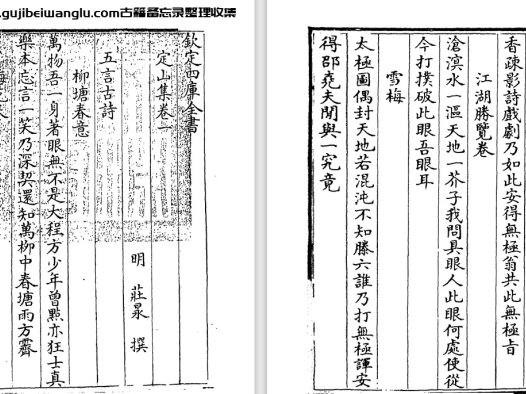 .gujibeiwanglu.com古籍备忘录整理收集
欽定四庫全書
定山集卷一
明 莊㫤 撰
五言古詩
柳塘春意
萬物吾一身著眼無不是大程方少年曾點亦狂士真
樂本忘言一笑乃深契還知萬柳中春塘雨方霽
香疎影詩戲劇乃如此安得無極翁共此無極㫖
江湖勝覽卷
滄溟水一漚天地一芥子我問具眼人此眼何處使從
今打撲破此眼吾眼耳
雪梅
太極圖偶封天地若混沌不知滕六誰乃打無極諢安
得邵堯夫聞與一究竟